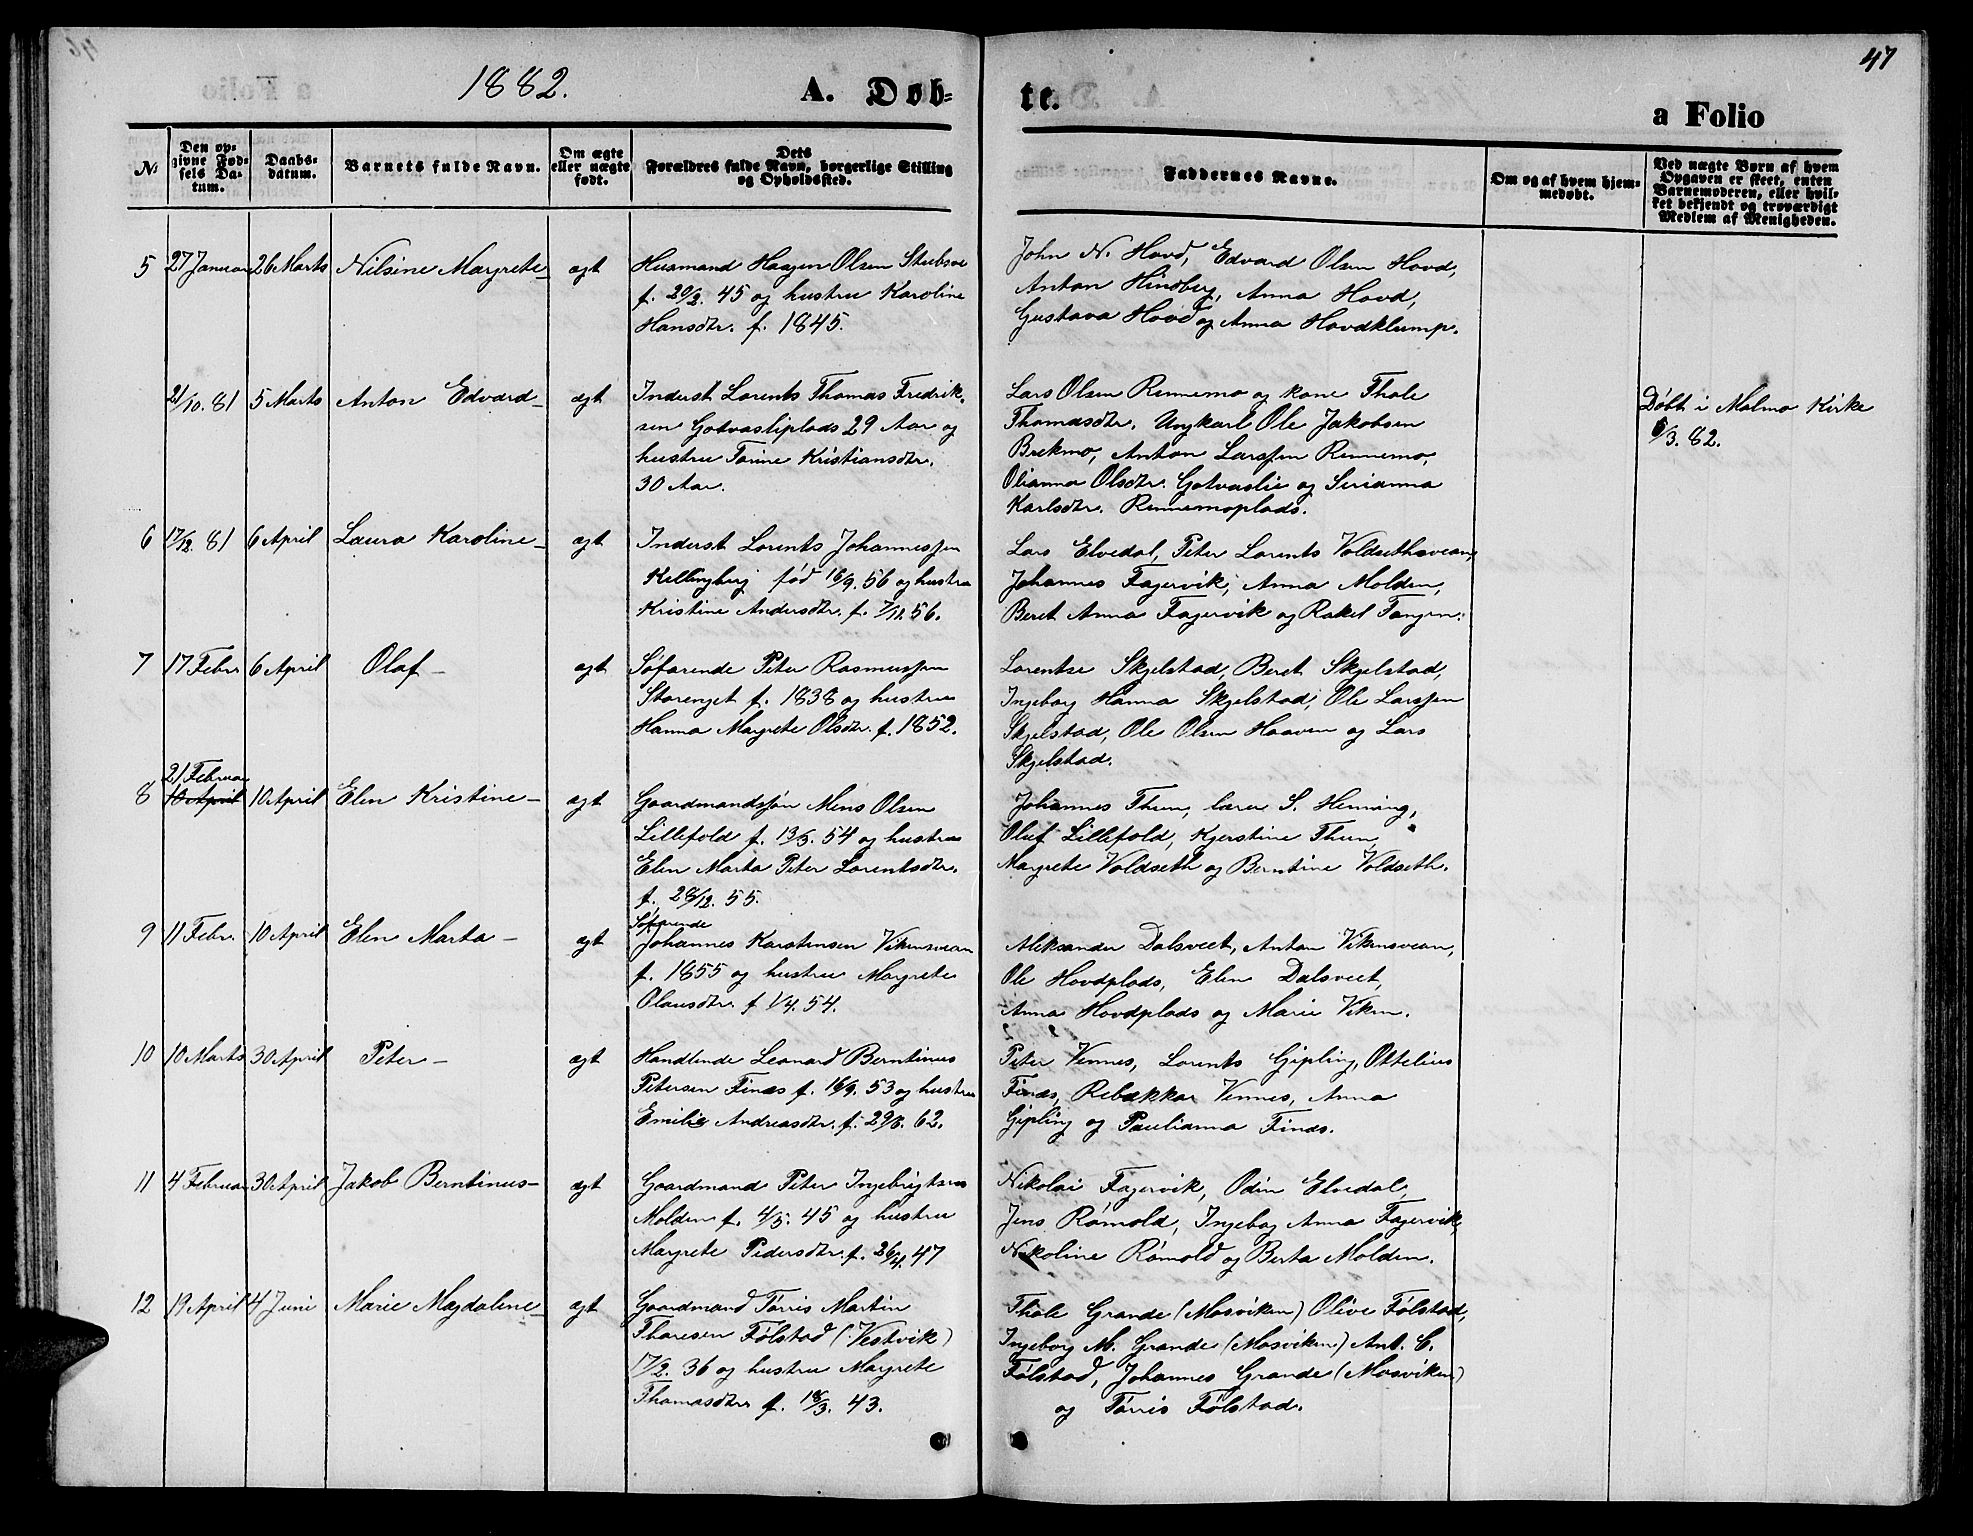 47
1882.
A. Døb-
te.
a Folio
№
Den op-
givne Fød-
sels Da-
tum.
Daabs-
datum.
Barnets fulde Navn.
Om ægte
eller uægte
født.
Dets
Forældres fulde Navn, borgerlige Stilling
og Opholdssted.
Faddernes Navne.
Om og af hvem hjem-
medøbt.
Ved uægte Børn af hvem
Opgaven er skeet, enten
Barnemoderen, eller hvil-
ket bekjendt og troværdigt
Medlem af Menigheden.
5 27 Januar 26 Marts Nilsine Margrete- ægt
Husmand Haagen Olsen
f. 20/2. 45 og hustru Karoline
Hansdtr. f. 1845.
John N. Hovd, Edvard Olsen Hovd,
Anton Hindberg, Anna Hovd,
Gustava Hovd og Anna Hovdklump.
21/10. 81 5 Marts Anton Edvard- ægt
Inderst Lorents Thomas Fredrik-
sen Gotvasliplads 29 Aar og
hustru Torine Kristiansdtr.
30 Aar.
Lars Olsen Rennemo og kone Thale
Thomasdtr. Ungkarl Ole Jakobsen
Brekmo, Anton Larssen Rennemo,
Olianna Olsdtr. Gotvaslie og Serianna
Karlsdtr. Rennemoplads.
Døbt i Malmo Kirke
5/3. 82.
6 17/12. 81 6 April Laura Karoline- ægt
Inderst Lorents Johannessen
Kellingberg fød 16/9. 56 og hustru
Kristine Andersdtr. f. 7/11. 56.
Lars Elvedal, Peter Lorents Voldsethsveam,
Johannes Fagervik, Anna Molden,
Beret Anna Fagervik og Rakel Tangen.
7 17 Febr. 6 April Olaf- ægt
Søfarende Peter Rasmussen
Storenget f. 1838 og hustru
Hanna Margrete Olsdtr. f. 1852.
Lorentse Skjelstad, Beret Skjelstad,
Ingeborg Hanna Skjelstad, Ole Larssen
Skjelstad, Ole Olsen Haaven og Lars
Skjelstad.
21 Februar
8 10 April 10 April Elen Kristine- ægt
Gaardmandssøn Mens Olsen
Lillefold f. 13/5. 54 og hustru
Elen Marta Peter Lorentsdtr.
f. 28/12. 55.
Johannes Thun, lærer S. Heming,
Oluf Lillefold, Kjerstine Thun,
Margrete Voldseth og Berntine Voldseth.
9 11 Febr. 10 April Elen Marta- ægt
Søfarende
Johannes Karstensen Vikensveam
f. 1855 og hustru Margrete
Olausdtr. f 1/4. 54.
Aleksander Dalsveet, Anton Vikensveam,
Ole Hovdplads, Elen Dalsveet,
Anna Hovdplads og Marie Viken.
10 10 Marts 30 April Peter- ægt
Handlende Leonard Berntinus
Petersen Finæs f. 16/9. 53 og hustru
Emilie Andreasdtr. f. 29/8. 62.
Peter Vennes, Lorents Gipling, Ottelius
Finæs, Rebækka Vennes, Anna
Gipling og Paulianna Finæs.
11 4 Februar 30 April Jakob Berntinus- ægt
Gaardmand Peter Ingebrigtsen
Molden f. 4/5. 45 og hustru
Margrete Pedersdtr. f. 26/4. 47
Nikolai Fagervik, Odin Elvedal,
Jens Rømold, Ingebog Anna Fagervik,
Nikoline Rømold og Berta Molden.
12 19 April 4 Juni Marie Magdalene- ægt
Gaardmand Tørris Martin
Tharesen Følstad (Vestvik)
17/2. 36 og hustru Margrete
Thomasdtr f. 18/3. 43.
Thale Grande (Mosviken) Olive Følstad,
Ingeborg M. Grande (Mosviken) Ant. C.
Følstad, Johannes Grande (Mosviken)
og Tørris Følstad.